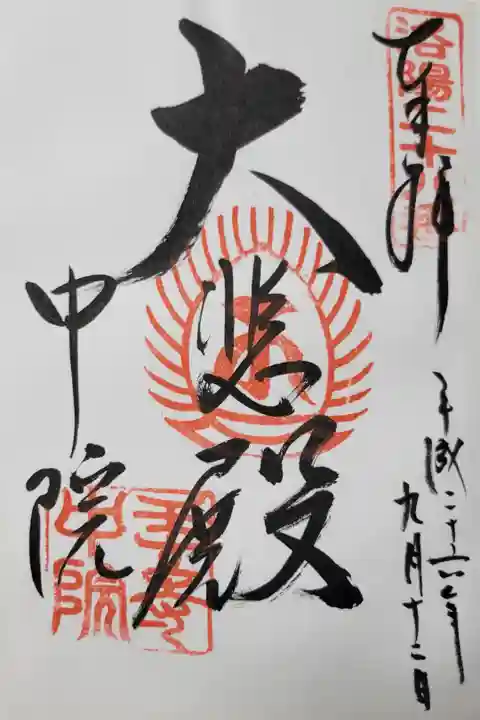 洛陽二十八番
奉拝
平成二十六年
九月十二日
大悲殿
中院
中院